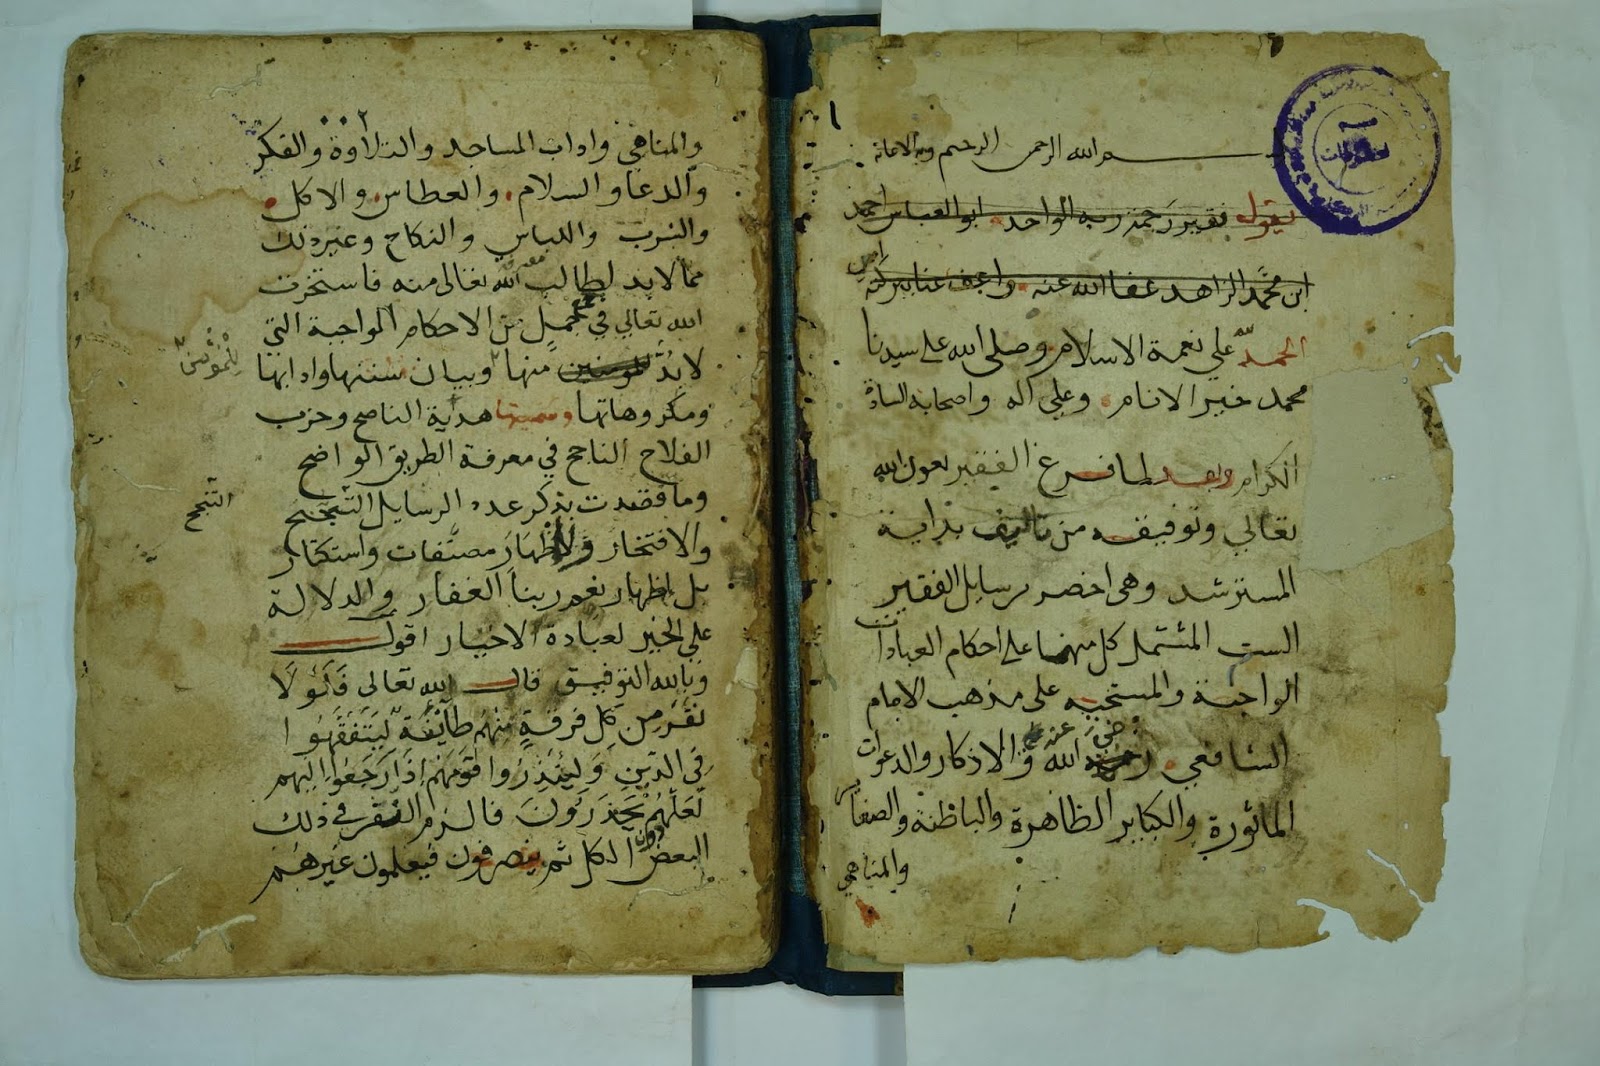 بسم الله الرحمن الرحيم وبه الاعانة
يقول فقير رحمة ربه الواحد ابو العباس احمد
ابن محمد الزاهد عفا الله عنه
الحمد لله علي نعمة الاسلام وصلي الله علي سيدنا
محمد خير الانام وعلي اله واصحابه السادة
الكرام وبعد لما فرغ الفقير بعون الله
تعالي وتوفيقه من تاليف بداية
المسترشد وهي اخصر رسايل الفقير
الست المشتمل كل منها علي احكام العبادات
الواجبة والمستحبه علي مذهب الامام
الشافعي رضي الله عنه والاذكار والدعوات
الماثورة والكباير الظاهرة والباطنة والصغاير
والمناهي
والمناهي واداب المساجد والتلاوة والفكر
والدعا والسلام والعطاس والاكل
والشرب واللباس والنكاح وغير ذلك
مما لابد لطالب الله تعالي منه فاستخرت
الله تعالي في جمل من الاحكام الواجبة التي
لابد للمومنين منها وبيان سننها وادابها
ومكروهاتها وسميتها هدية الناصح وحزب
الفلاح الناجح في معرفة الطريق الواضح
وما قصدت بذكر عده الرسايل التبجح
التبجح
والافتخار ولا اظهار مصنفات واستكثار
بل اظهار نعم ربنا الغفار والدلالة
علي الخير لعبادة الاخيار اقول
وبالله التوفيق قال الله تعالي فَلَوْلَا
نَفَرَ مِن كُل فرقةٍ منهُم طَآئِفَة لِيَتَفَقَّهُوا
فِي الدّينِ وَلِيُنذِرُوا قَوْمَهُم اِذَا رَجَعُوا اليهم
لَعَلّهُم يَحْذَرُونَ فالزم النفر في ذلك
البعض دون الكل ثم ينصرفون فيعلمون غيرهم